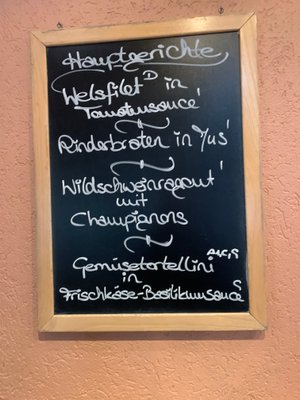 Hauptgerichte
Welsfilet D in
Tomatensauce
Rinderbraten in Jus
Wildschweinragout
mit
Champignons
Gemüsetortellini
in
Frischkäse-Basilikumsauce G